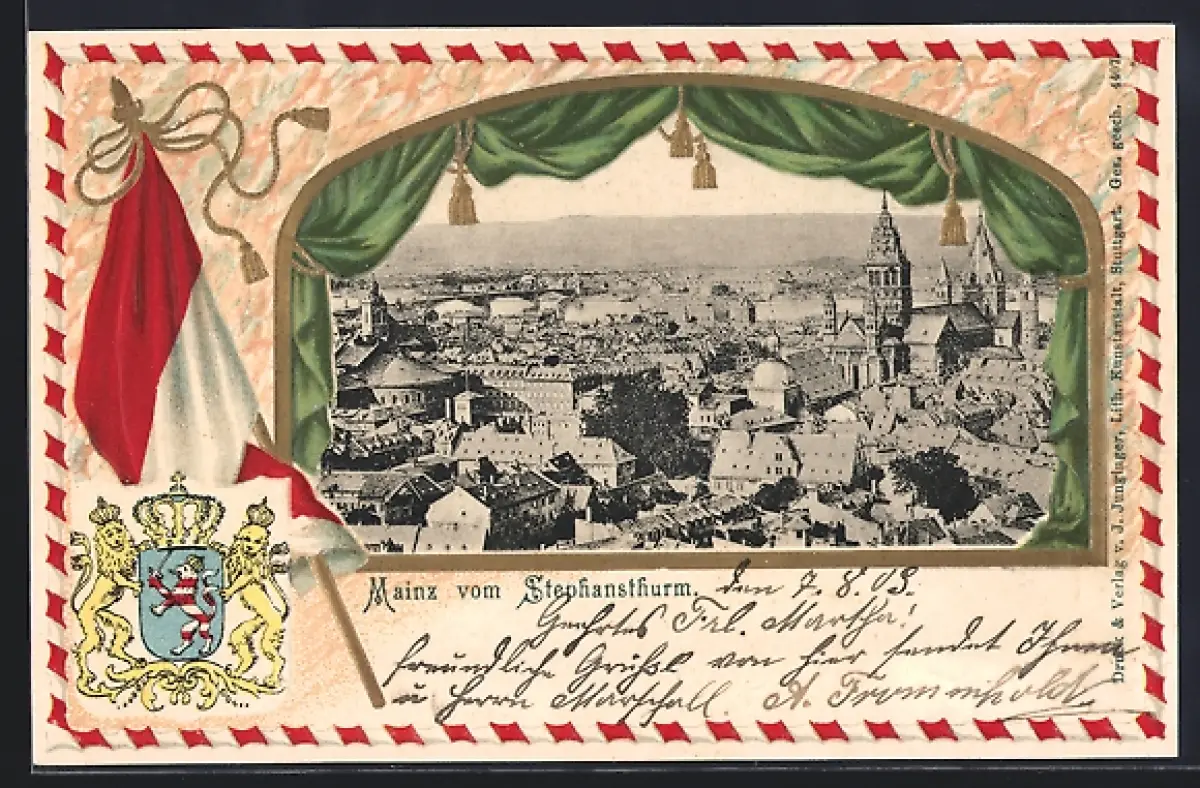 Mainz vom Stephansthurm. den 7. 8. 03.
Geehrtes Frl. Martha!
freundliche Grüße von hier sendet Ihnen
u Herrn Marschall. A. Frommholdt.
Druck & Verlag v. J. Junginger, Lith. Kunstanstalt, Stuttgart. Ges. gesch.